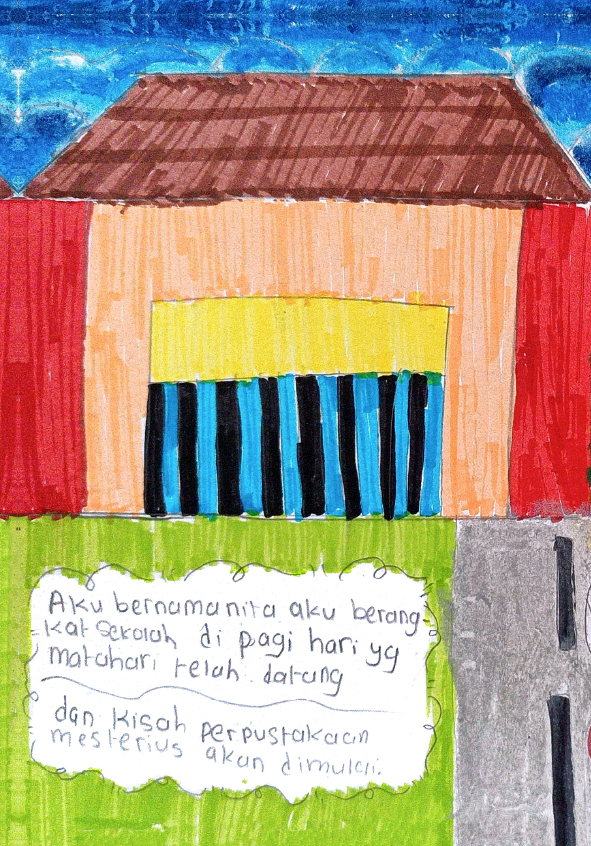 Aku bernama nita aku berang-
kat sekolah di pagi hari yg
matahari telah datang
dan kisah perpustakaan
mesterius akan dimulai.